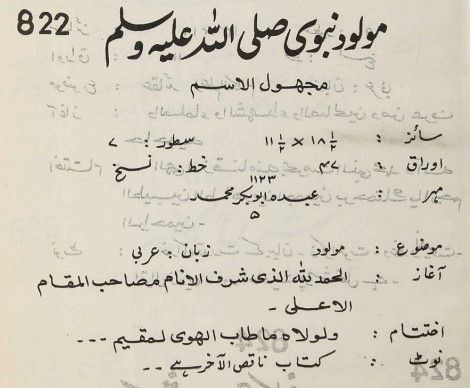 822
مولود نبوی صلی اللہ علیہ وسلم
مجهول الاسم
سائز : ۱۸ ۱/۲ × ۱۱ ۱/۲ سطور : ۷
اوراق : ۴۷ خط : نسخ
مہر : ۱۱۲۳ عبدہ ابوبکر محمد ۵
موضوع : مولود زبان : عربی
آغاز : الحمد للہ الذی شرف الانام مصاحب المقام
الاعلی -
اختتام : ولولاه ما طاب الهوی لمقیم ---
نوٹ : کتاب ناقص الآخر ہے --